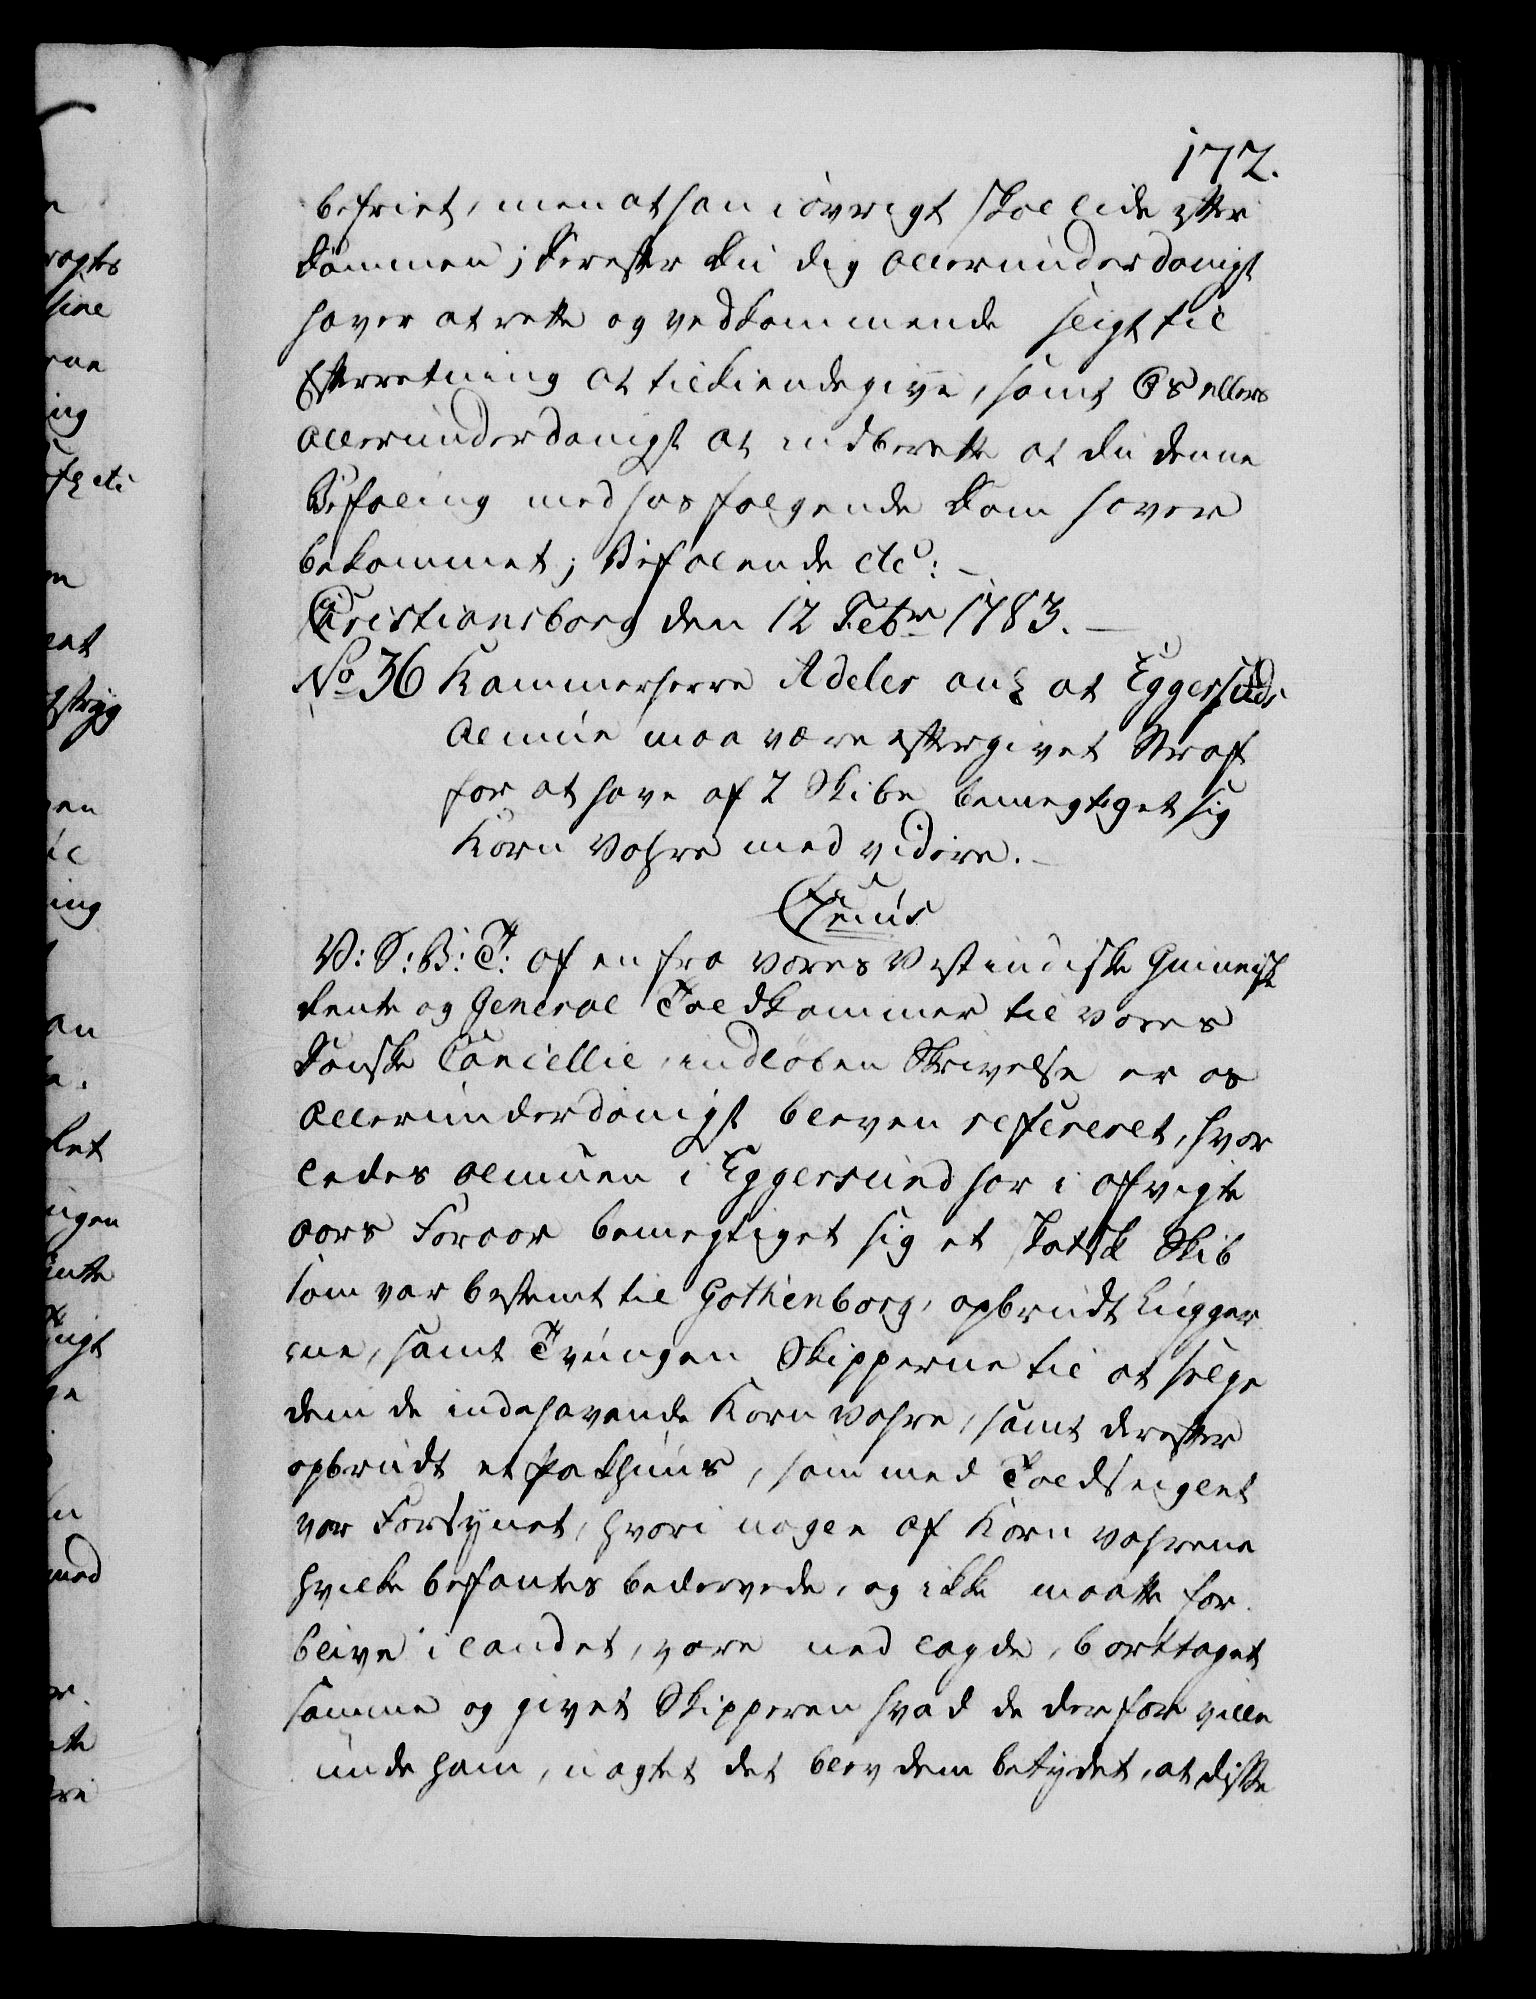 172.
befriet, men at han i øvrigt skal lide efter
Dommen; Derefter Du dig allerunderdanigst
haver at rette og vedkommende sligt til
Efterretning at tilkiendegive, samt Os ellers
allerunderdanigst at indberette at du denne
Befaling med hosfølgende Dom haver
bekommet; Befalende etc: —
Christiansborg den 12 Febr 1783. —
No 36 Kammerherre Adeler ang at Eggersunds
Almue maa være eftergivet Straf
for at have af 2 Skibe bemegtiget sig
Korn Vahre med videre. —
C7mus
V: S: B: T: af en fra vores Vestindiske Guineisk
Rente og General Toldkammer til vores
Danske Cancellie indløben Skrivelse er os
allerunderdanigst bleven refereret, hvor
ledes almuen i Eggersund har i afvigte
aars Foraar bemegtiget sig et skotsk Skib
som var bestemt til Gothenborg, opbrudt Luger
ne, samt Tvungen Skipperne til at selge
dem de indehavende Korn vahre, samt derefter
opbrudt et Pakhuus, som med Toldseiglet
var Forsynet, hvori nogle af Korn vahrene
hvilke befantes bedervede, og ikke maatte for
blive i landet, vare ned lagde, borttaget
samme og givet Skipperen hvad de derfor ville
unde ham, uagtet det blev dem betydet, at disse